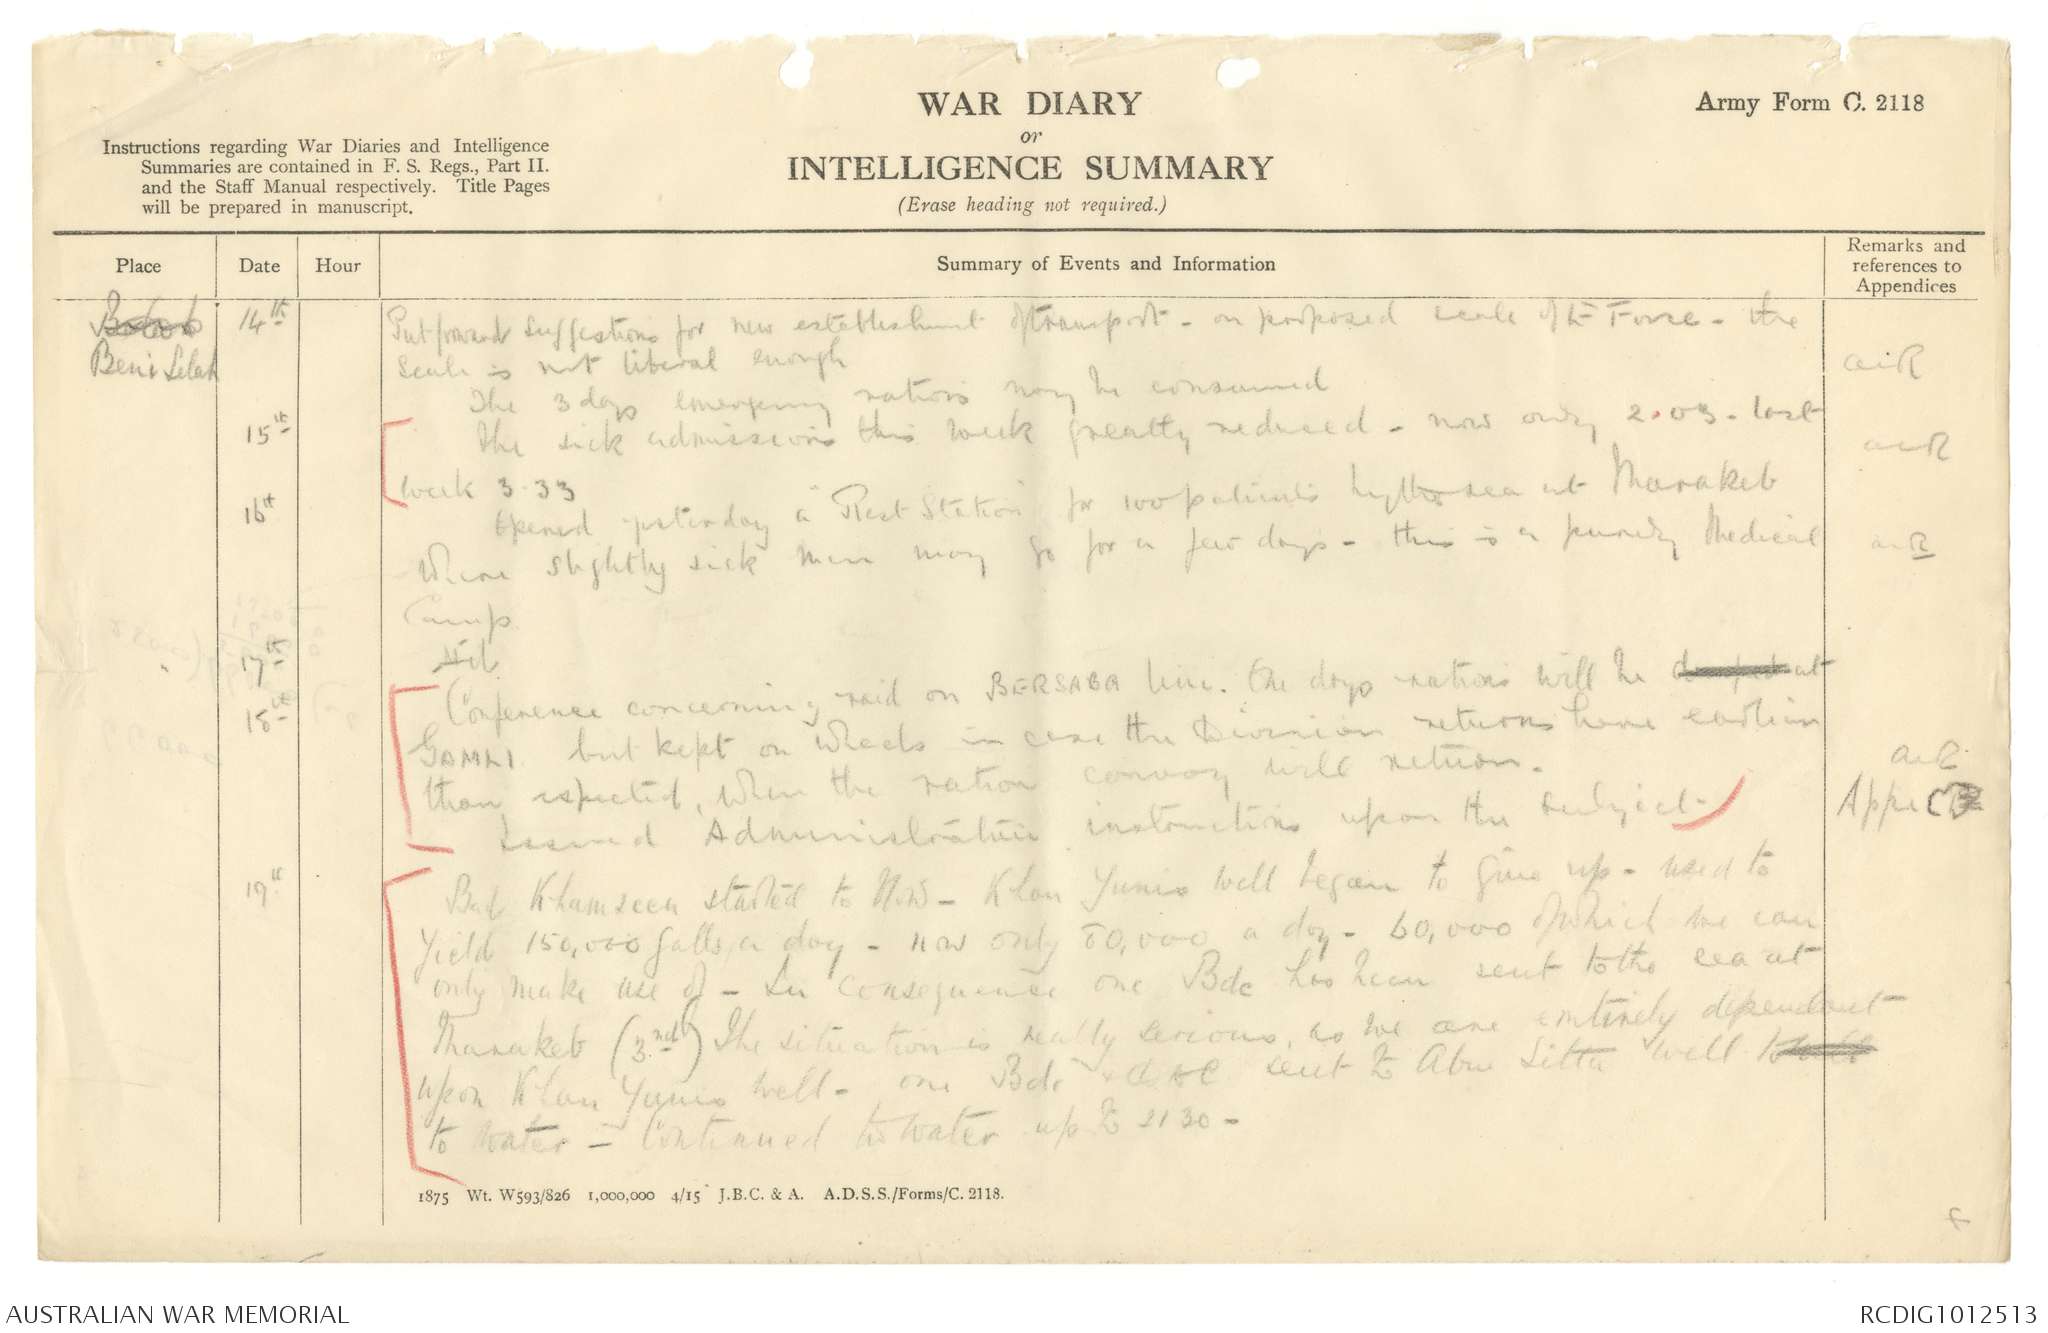 WAR DIARY
or
INTELLIGENCE SUMMARY
(Erase heading not required.)
Army Form C. 2118
Instructions regarding War Diaries and Intelligence
Summaries are contained in F. S. Regs., Part II.
and the Staff Manual respectively. Title Pages
will be prepared in manuscript.
Place Date Hour Summary of Events and Information Remarks and references to Appendices
Beni Selah 14th Put forward suggestions for new establishment of transport - on proposed scale of E Force - the
scale is not liberal enough
The 3 days emergency rations may be consumed
15th The sick admissions this week greatly reduced - now only 2.03 - last
week 3.33
16th Opened yesterday a "Rest Station" for 100 patients by the sea at Marakeb
Where slightly sick men may go for a few days - this is a purely Medical
Camp
" 17th Nil
18th Conference concerning raid on BERSABA line. One days rations will be at
GAMLI but kept on wheels in case the Division returns home earlier
than expected, when the ration convoy will return.
Issued Administrative instructions upon the subject. Appx
19th Bad Khamseen started to blow - Khan Yunis well began to give up - used to
yield 150,000 galls a day - now only 80,000 a day - 60,000 of which we can
only make use of - In consequence one Bde has been sent to the sea at
Marakeb (3rd) The situation is really serious, as we are entirely dependant
upon Khan Yunis well - one Bde + sent to Abu Sitta well
to water - Continued to water up to 2130 -
1875 Wt. W593/826 1,000,000 4/15 J.B.C. & A. A.D.S.S./Forms/C. 2118.
AUSTRALIAN WAR MEMORIAL
RCDIG1012513